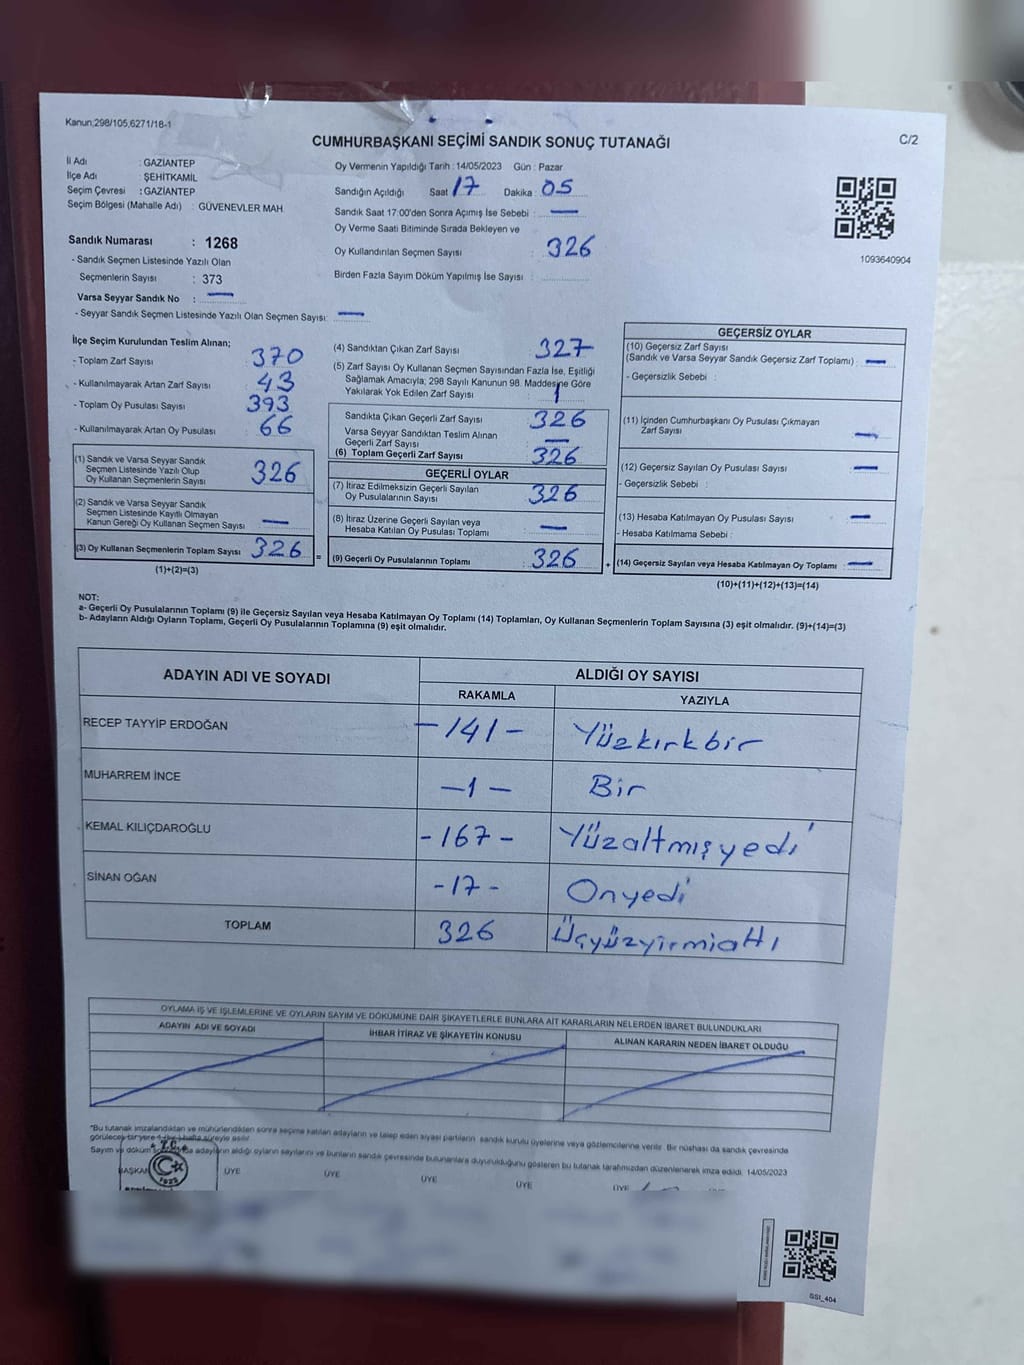 Kanun,298/105,6271/18-1
CUMHURBAŞKANI SEÇİMİ SANDIK SONUÇ TUTANAĞI
C/2
İl Adı : GAZİANTEP
İlçe Adı : ŞEHİTKAMİL
Seçim Çevresi : GAZİANTEP
Seçim Bölgesi (Mahalle Adı) : GÜVENEVLER MAH
Oy Vermenin Yapıldığı Tarih : 14/05/2023 Gün : Pazar
Sandığın Açıldığı Saat 17 Dakika : 05
Sandık Saat 17:00'den Sonra Açımış İse Sebebi : —
Oy Verme Saati Bitiminde Sırada Bekleyen ve
Oy Kullandırılan Seçmen Sayısı : 326
Birden Fazla Sayım Döküm Yapılmış İse Sayısı :
1093640904
Sandık Numarası : 1268
- Sandık Seçmen Listesinde Yazılı Olan
Seçmenlerin Sayısı : 373
Varsa Seyyar Sandık No : —
- Seyyar Sandık Seçmen Listesinde Yazılı Olan Seçmen Sayısı: —
İlçe Seçim Kurulundan Teslim Alınan;
- Toplam Zarf Sayısı 370
- Kullanılmayarak Artan Zarf Sayısı : 43
- Toplam Oy Pusulası Sayısı : 393
- Kullanılmayarak Artan Oy Pusulası : 66
(1) Sandık ve Varsa Seyyar Sandık
Seçmen Listesinde Yazılı Olup
Oy Kullanan Seçmenlerin Sayısı : 326
(2) Sandık ve Varsa Seyyar Sandık
Seçmen Listesinde Kayıtlı Olmayan
Kanun Gereği Oy Kullanan Seçmen Sayısı : —
(3) Oy Kullanan Seçmenlerin Toplam Sayısı : 326 =
(1)+(2)=(3)
(4) Sandıktan Çıkan Zarf Sayısı : 327
(5) Zarf Sayısı Oy Kullanan Seçmen Sayısından Fazla İse, Eşitliği
Sağlamak Amacıyla; 298 Sayılı Kanunun 98. Maddesine Göre
Yakılarak Yok Edilen Zarf Sayısı : 1
Sandıkta Çıkan Geçerli Zarf Sayısı : 326
Varsa Seyyar Sandıktan Teslim Alınan
Geçerli Zarf Sayısı : —
(6) Toplam Geçerli Zarf Sayısı : 326
GEÇERLİ OYLAR
(7) İtiraz Edilmeksizin Geçerli Sayılan
Oy Pusulalarının Sayısı : 326
(8) İtiraz Üzerine Geçerli Sayılan veya
Hesaba Katılan Oy Pusulası Toplamı : —
(9) Geçerli Oy Pusulalarının Toplamı : 326 +
GEÇERSİZ OYLAR
(10) Geçersiz Zarf Sayısı
(Sandık ve Varsa Seyyar Sandık Geçersiz Zarf Toplamı) : —
- Geçersizlik Sebebi :
(11) İçinden Cumhurbaşkanı Oy Pusulası Çıkmayan
Zarf Sayısı : —
(12) Geçersiz Sayılan Oy Pusulası Sayısı : —
- Geçersizlik Sebebi :
(13) Hesaba Katılmayan Oy Pusulası Sayısı : —
- Hesaba Katılmama Sebebi :
(14) Geçersiz Sayılan veya Hesaba Katılmayan Oy Toplamı : —
(10)+(11)+(12)+(13)=(14)
NOT:
a- Geçerli Oy Pusulalarının Toplamı (9) ile Geçersiz Sayılan veya Hesaba Katılmayan Oy Toplamı (14) Toplamları, Oy Kullanan Seçmenlerin Toplam Sayısına (3) eşit olmalıdır. (9)+(14)=(3)
b- Adayların Aldığı Oyların Toplamı, Geçerli Oy Pusulalarının Toplamına (9) eşit olmalıdır.
ADAYIN ADI VE SOYADI
ALDIĞI OY SAYISI
RAKAMLA YAZIYLA
RECEP TAYYİP ERDOĞAN -141- Yüzkırkbir
MUHARREM İNCE -1- Bir
KEMAL KILIÇDAROĞLU -167- Yüzaltmışyedi
SİNAN OĞAN -17- Onyedi
TOPLAM 326 Üçyüzyirmialtı
OYLAMA İŞ VE İŞLEMLERİNE VE OYLARIN SAYIM VE DÖKÜMÜNE DAİR ŞİKAYETLERLE BUNLARA AİT KARARLARIN NELERDEN İBARET BULUNDUKLARI
ADAYIN ADI VE SOYADI İHBAR İTİRAZ VE ŞİKAYETİN KONUSU ALINAN KARARIN NEDEN İBARET OLDUĞU
*Bu tutanak imzalandıktan ve mühürlendikten sonra seçime katılan adayların ve talep eden siyasi partilerin sandık kurulu üyelerine veya gözlemcilerine verilir. Bir nüshası da sandık çevresinde
görülecek bir yere süreyle asılır
Sayım ve döküm adayların aldığı oyların sayılarını ve bunların sandık çevresinde bulunanlara duyurulduğunu gösteren bu tutanak tarafımızdan düzenlenerek imza edildi. 14/05/2023
T.C.
1922
BAŞKAN ÜYE ÜYE ÜYE ÜYE ÜYE
GSI_404